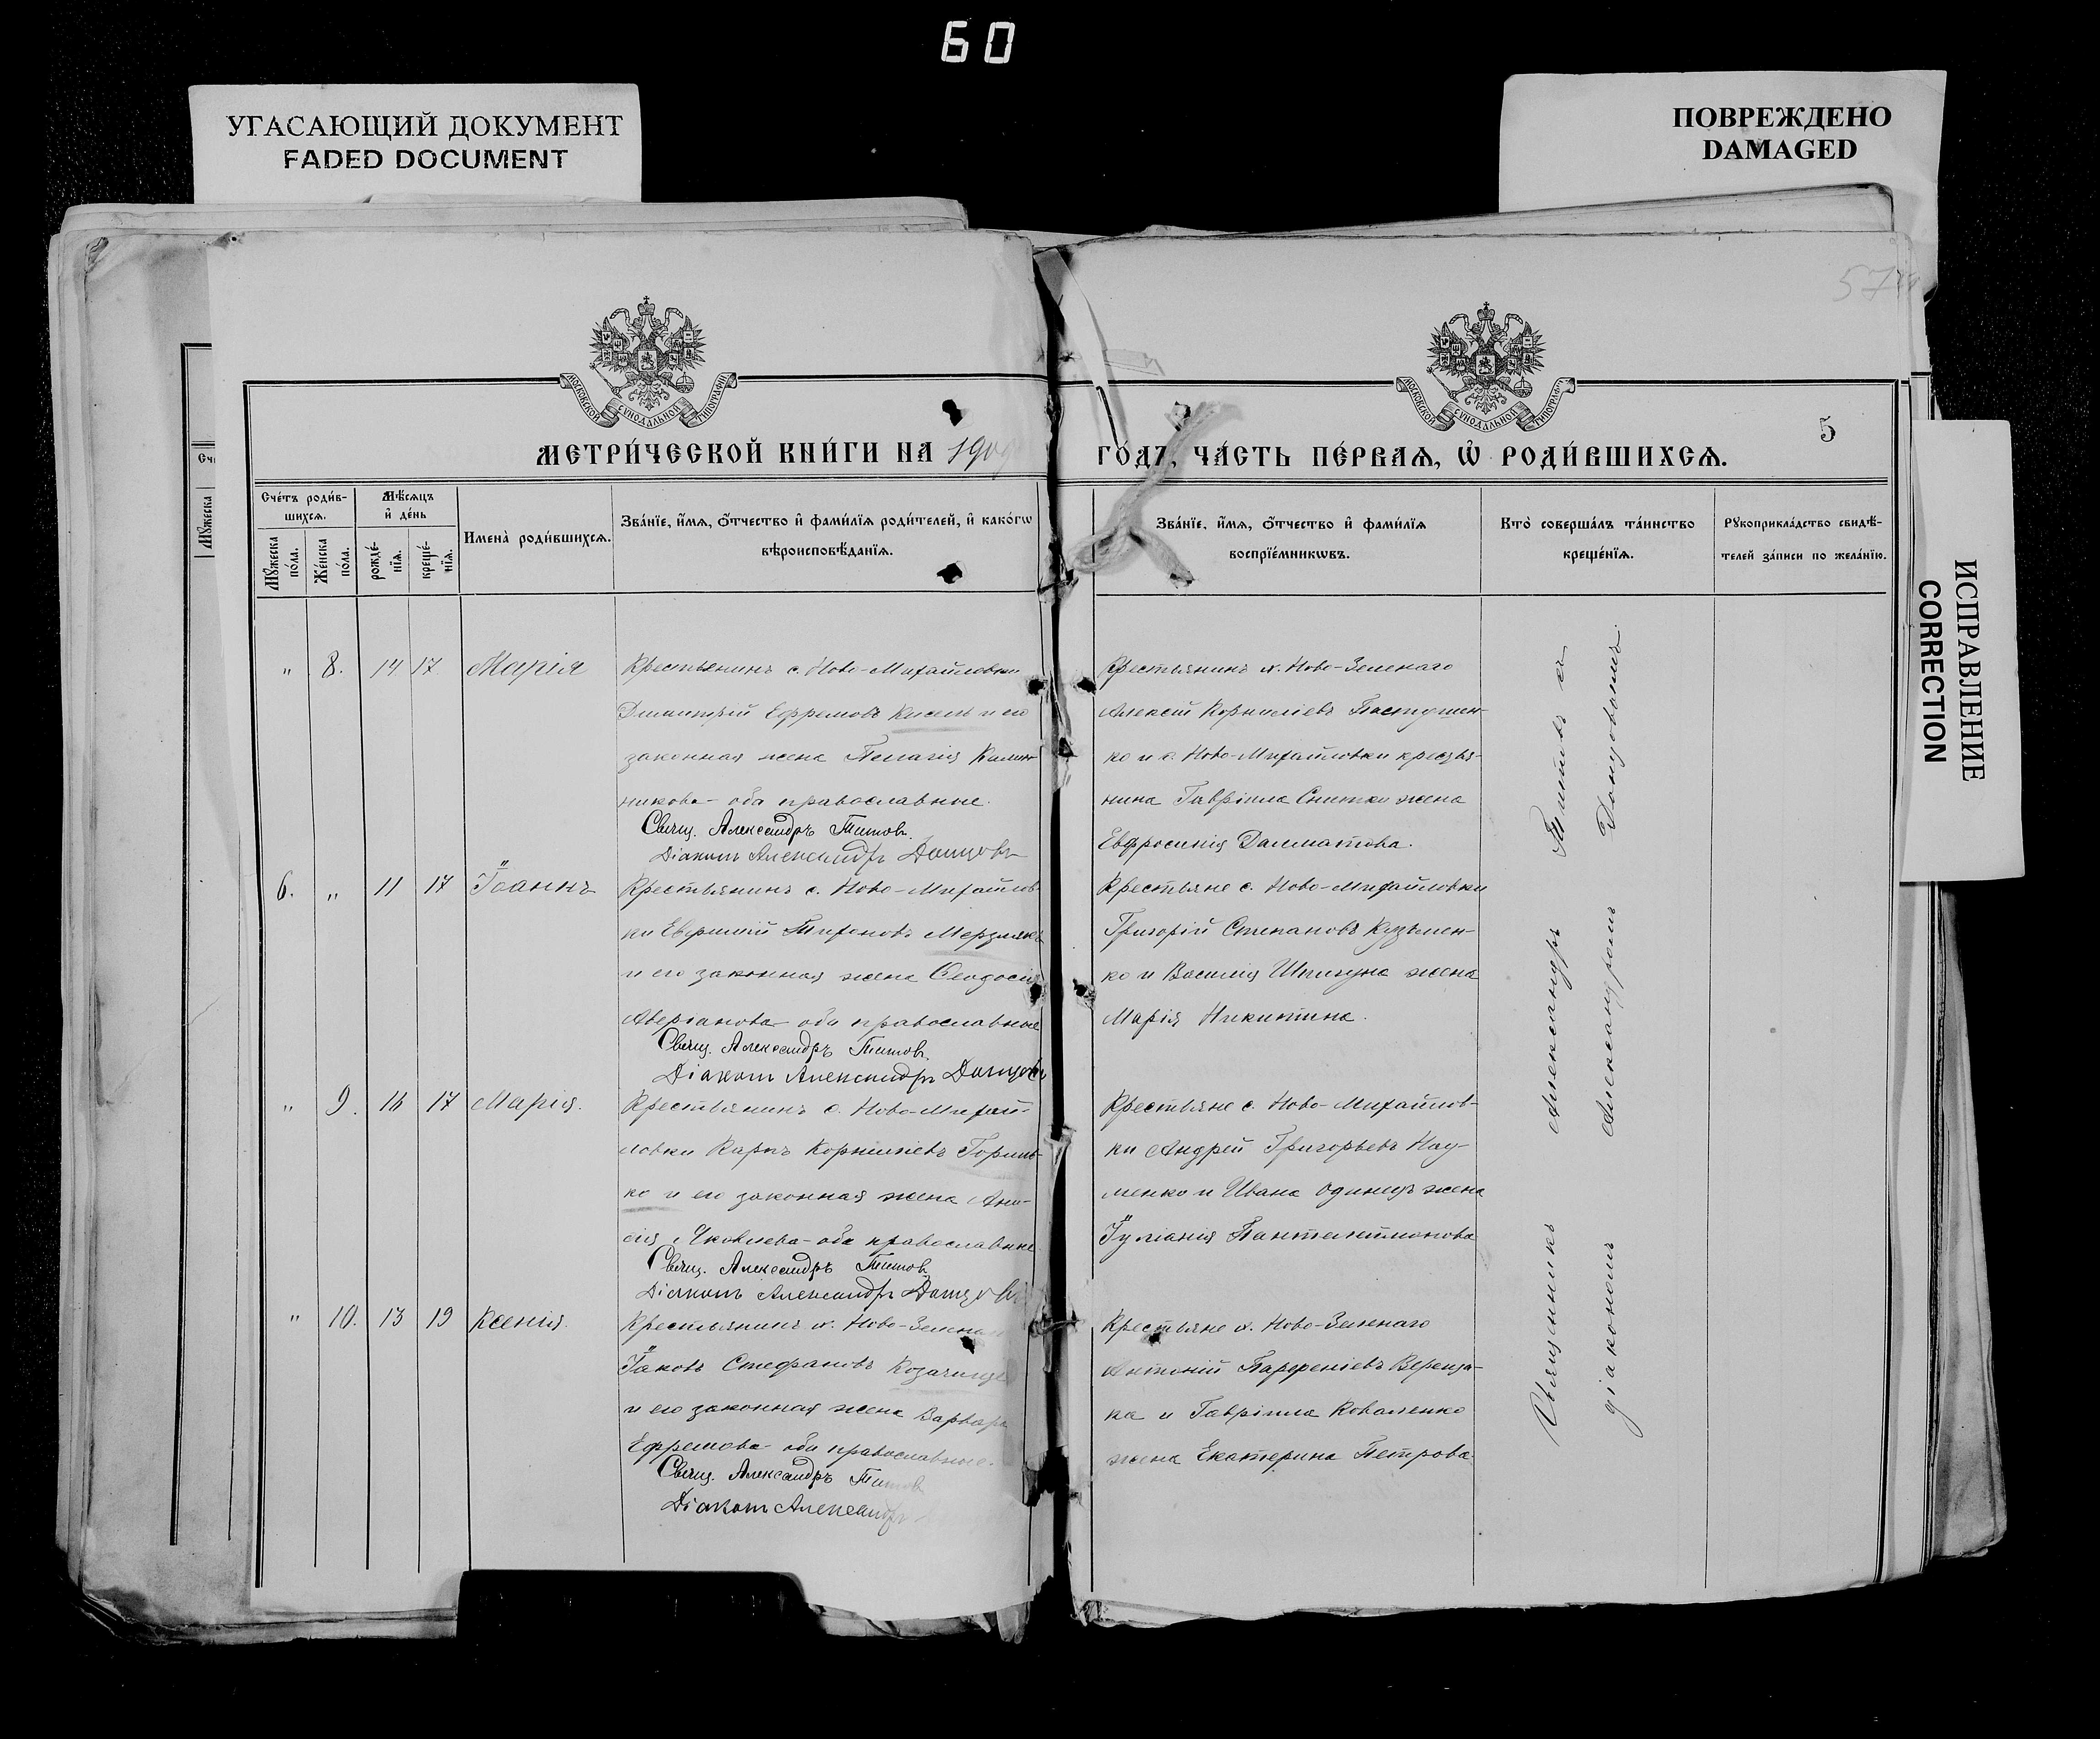 60
УГАСАЮЩИЙ ДОКУМЕНТ
FADED DOCUMENT
ПОВРЕЖДЕНО
DAMAGED
ИСПРАВЛЕНИЕ
CORRECTION
57
5
МОСКОВСКОЙ СѴНОДАЛЬНОЙ ТИПОГРАФІИ
МОСКОВСКОЙ СѴНОДАЛЬНОЙ ТИПОГРАФІИ
МЕТРИ́ЧЕСКОЙ КНИ́ГИ НА 1909
ГО́ДЪ, ЧА́СТЬ ПЕ́РВАѦ, Ѡ҆ РОДИ́ВШИХСѦ.
Сче́тъ роди́в-
шихсѧ.
Мꙋ́жеска по́ла.
Же́нска по́ла.
Мѣ́сѧцъ
и҆ де́нь
рожде́-нїѧ.
креще́-нїѧ.
Имена̀ роди́вшихсѧ.
Зва́нїе, и҆́мѧ, ѻ҆́тчество и҆ фами́лїѧ роди́телей, и҆ како́гѡ
вѣроисповѣ́данїѧ.
Зва́нїе, и҆́мѧ, ѻ҆́тчество и҆ фами́лїѧ
воспрїе́мникѡвъ.
Кто̀ соверша́лъ та́инство
креще́нїѧ.
Рꙋкоприкла́дство свидѣ́-
телей за́писи по жела́нїю.
" 8. 14 17 Марія
Крестьянинъ с. Ново-Михайловки
Димитрій Ефремовъ Кисель и его
законная жена Пелагія Калин-
никова - оба православные.
Свящ. Александръ Титов.
Діаконъ Александръ Донцовъ
Крестьянинъ х. Ново-Зеленаго
Алексій Корниліевъ Пастушен-
ко и с. Ново-Михайловки крестья-
нина Гавріила Снитки жена
Евфросинія Далматова.
6. " 11 17 Іоаннъ
Крестьянинъ с. Ново-Михайлов-
ки Евфимій Тифоновъ Мерзлякъ
и его законная жена Ѳеодосія
Аверіанова - оба православные
Свящ. Александръ Титов.
Діаконъ Александръ Донцовъ
Крестьяне с. Ново-Михайловки
Григорій Стефановъ Кузьмен-
ко и Василія Шпигуна жена
Марія Никитина.
" 9. 16 17 Марія.
Крестьянинъ с. Ново-Михай-
ловки Карпъ Корниліевъ Гориш-
ко и его законная жена Ани-
сія Яковлева - оба православные
Свящ. Александръ Титов
Діаконъ Александръ Донцовъ
Крестьяне с. Ново-Михайлов-
ки Андрей Григорьевъ Нау-
менко и Ивана Одинецъ жена
Іуліанія Пантелеимонова
" 10. 13 19 Ксенія.
Крестьянинъ х. Ново-Зелена
Іаковъ Стефановъ
и его законная жена Варвара
Ефремова - оба православные.
Свящ. Александръ Титов
Діаконъ Александръ
Крестьяне х. Ново-Зеленаго
Антоній Парѳеніевъ Вереща-
ка и Гавріила Коваленко
жена Екатерина Петрова.
Священникъ Александръ Титовъ съ
діакономъ Александромъ Донцовымъ.
Сче
Мꙋжеска